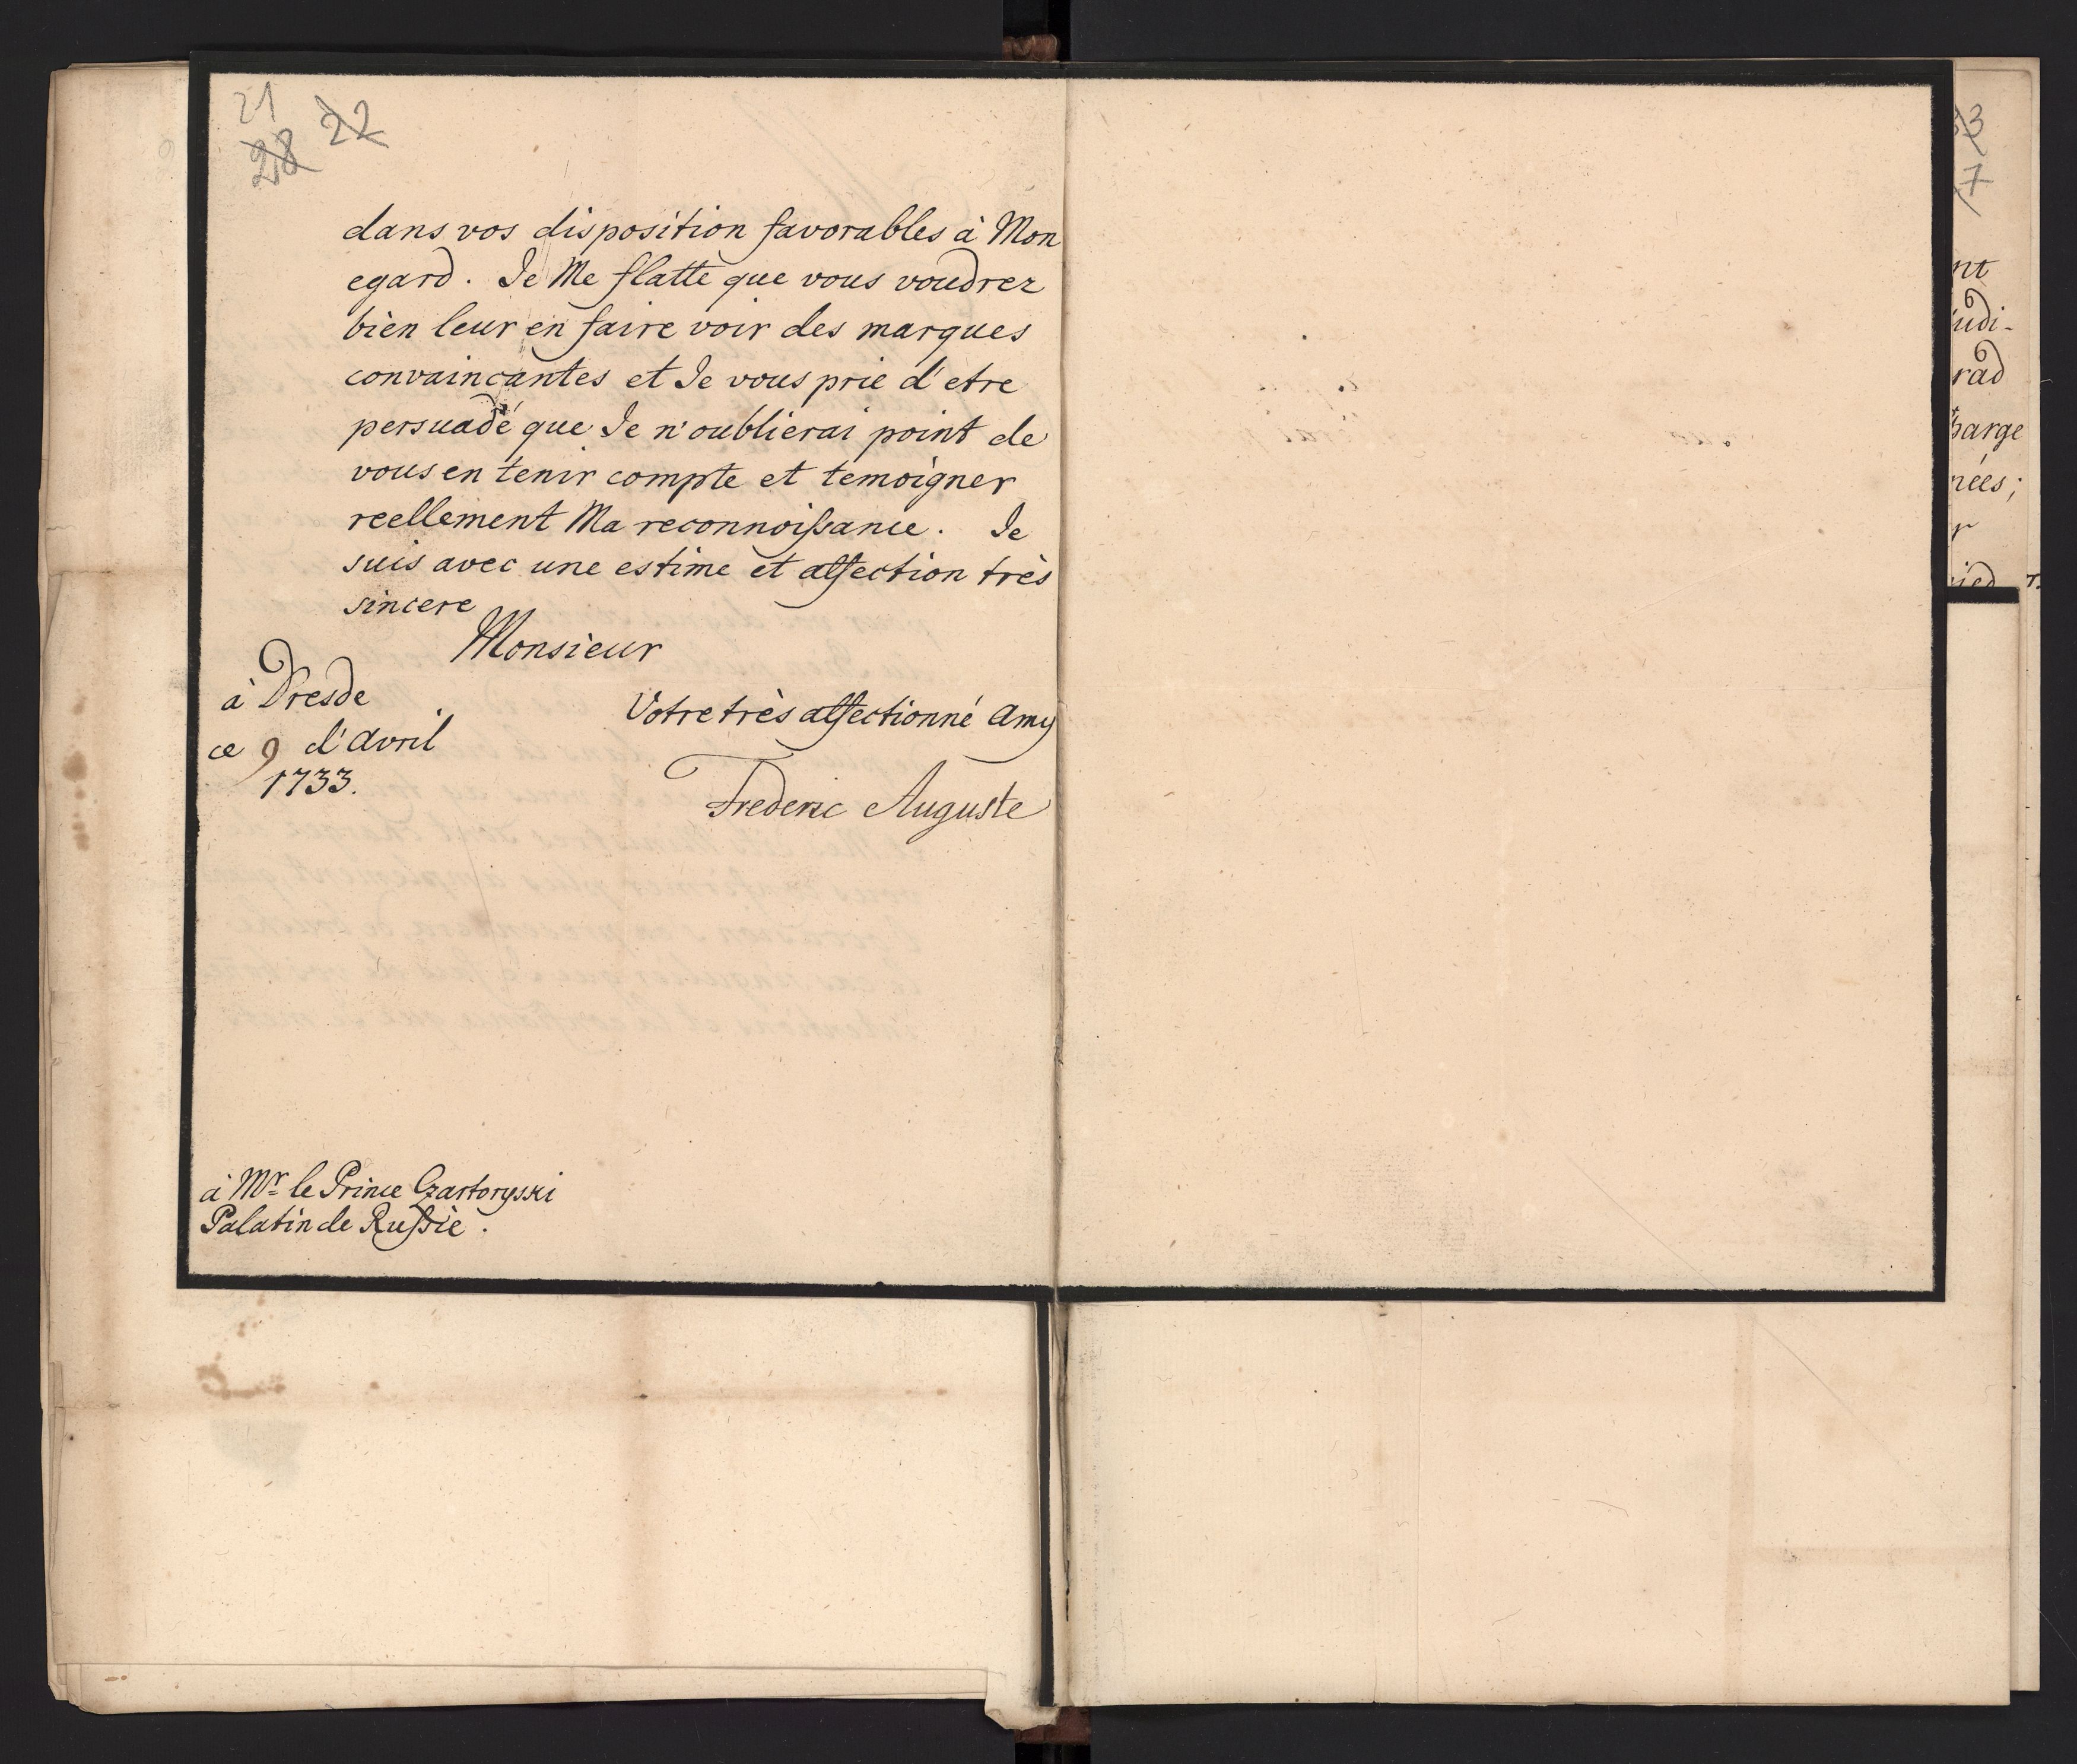 21
28 22
dans vos disposition favorables à Mon
egard. Je Me flatte que vous voudrez
bien leur en faire voir des marques
convaincantes et Je vous prie d'etre
persuadé que Je n'oublierai point de
vous en tenir compte et temoigner
reellement Ma reconnoissance. Je
suis avec une estime et affection très
sincere
Monsieur
à Dresde
ce 9 d'Avril
1733.
Votre très affectionné Amy
Frederic Auguste
à Mr. le Prince Czartoryski
Palatin de Russie.
3
7
nt
udi-
rad
harge
nées;
r